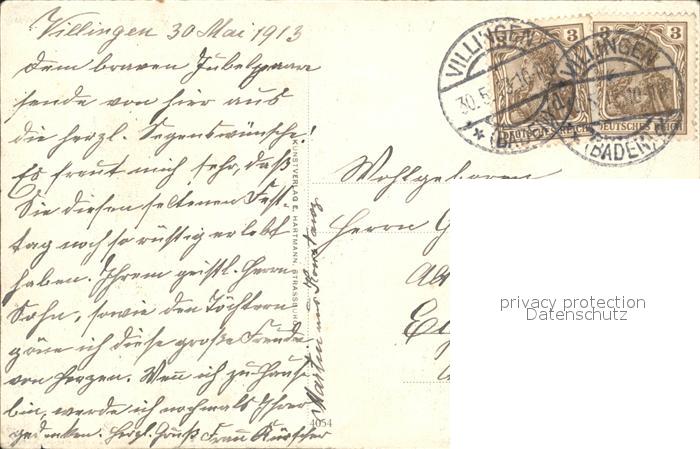 Villingen 30 Mai 1913
Dem braven Jubelpaare
sende von hier aus
die herzl. Segenswünsche!
Es freut mich sehr, daß
Sie diesen seltenen Fest-
tag noch so rüstig erlebt
haben. Ihrem geistl. Herrn
Sohn, sowie den Töchtern
göne ich diese große Freude
von Herzen. Wen ich zu Hause
bin, werde ich nochmals Ihrer
gedenken. Herzl. Gruß Frau
Martin und
KUNSTVERLAG E. HARTMANN, STRASSBURG
4054
VILLINGEN
30.5.
* (BADEN)
3
DEUTSCHES REICH
VILLINGEN
(BADEN)
3
DEUTSCHES REICH
Wohlgeboren
Herrn G
privacy protection
Datenschutz